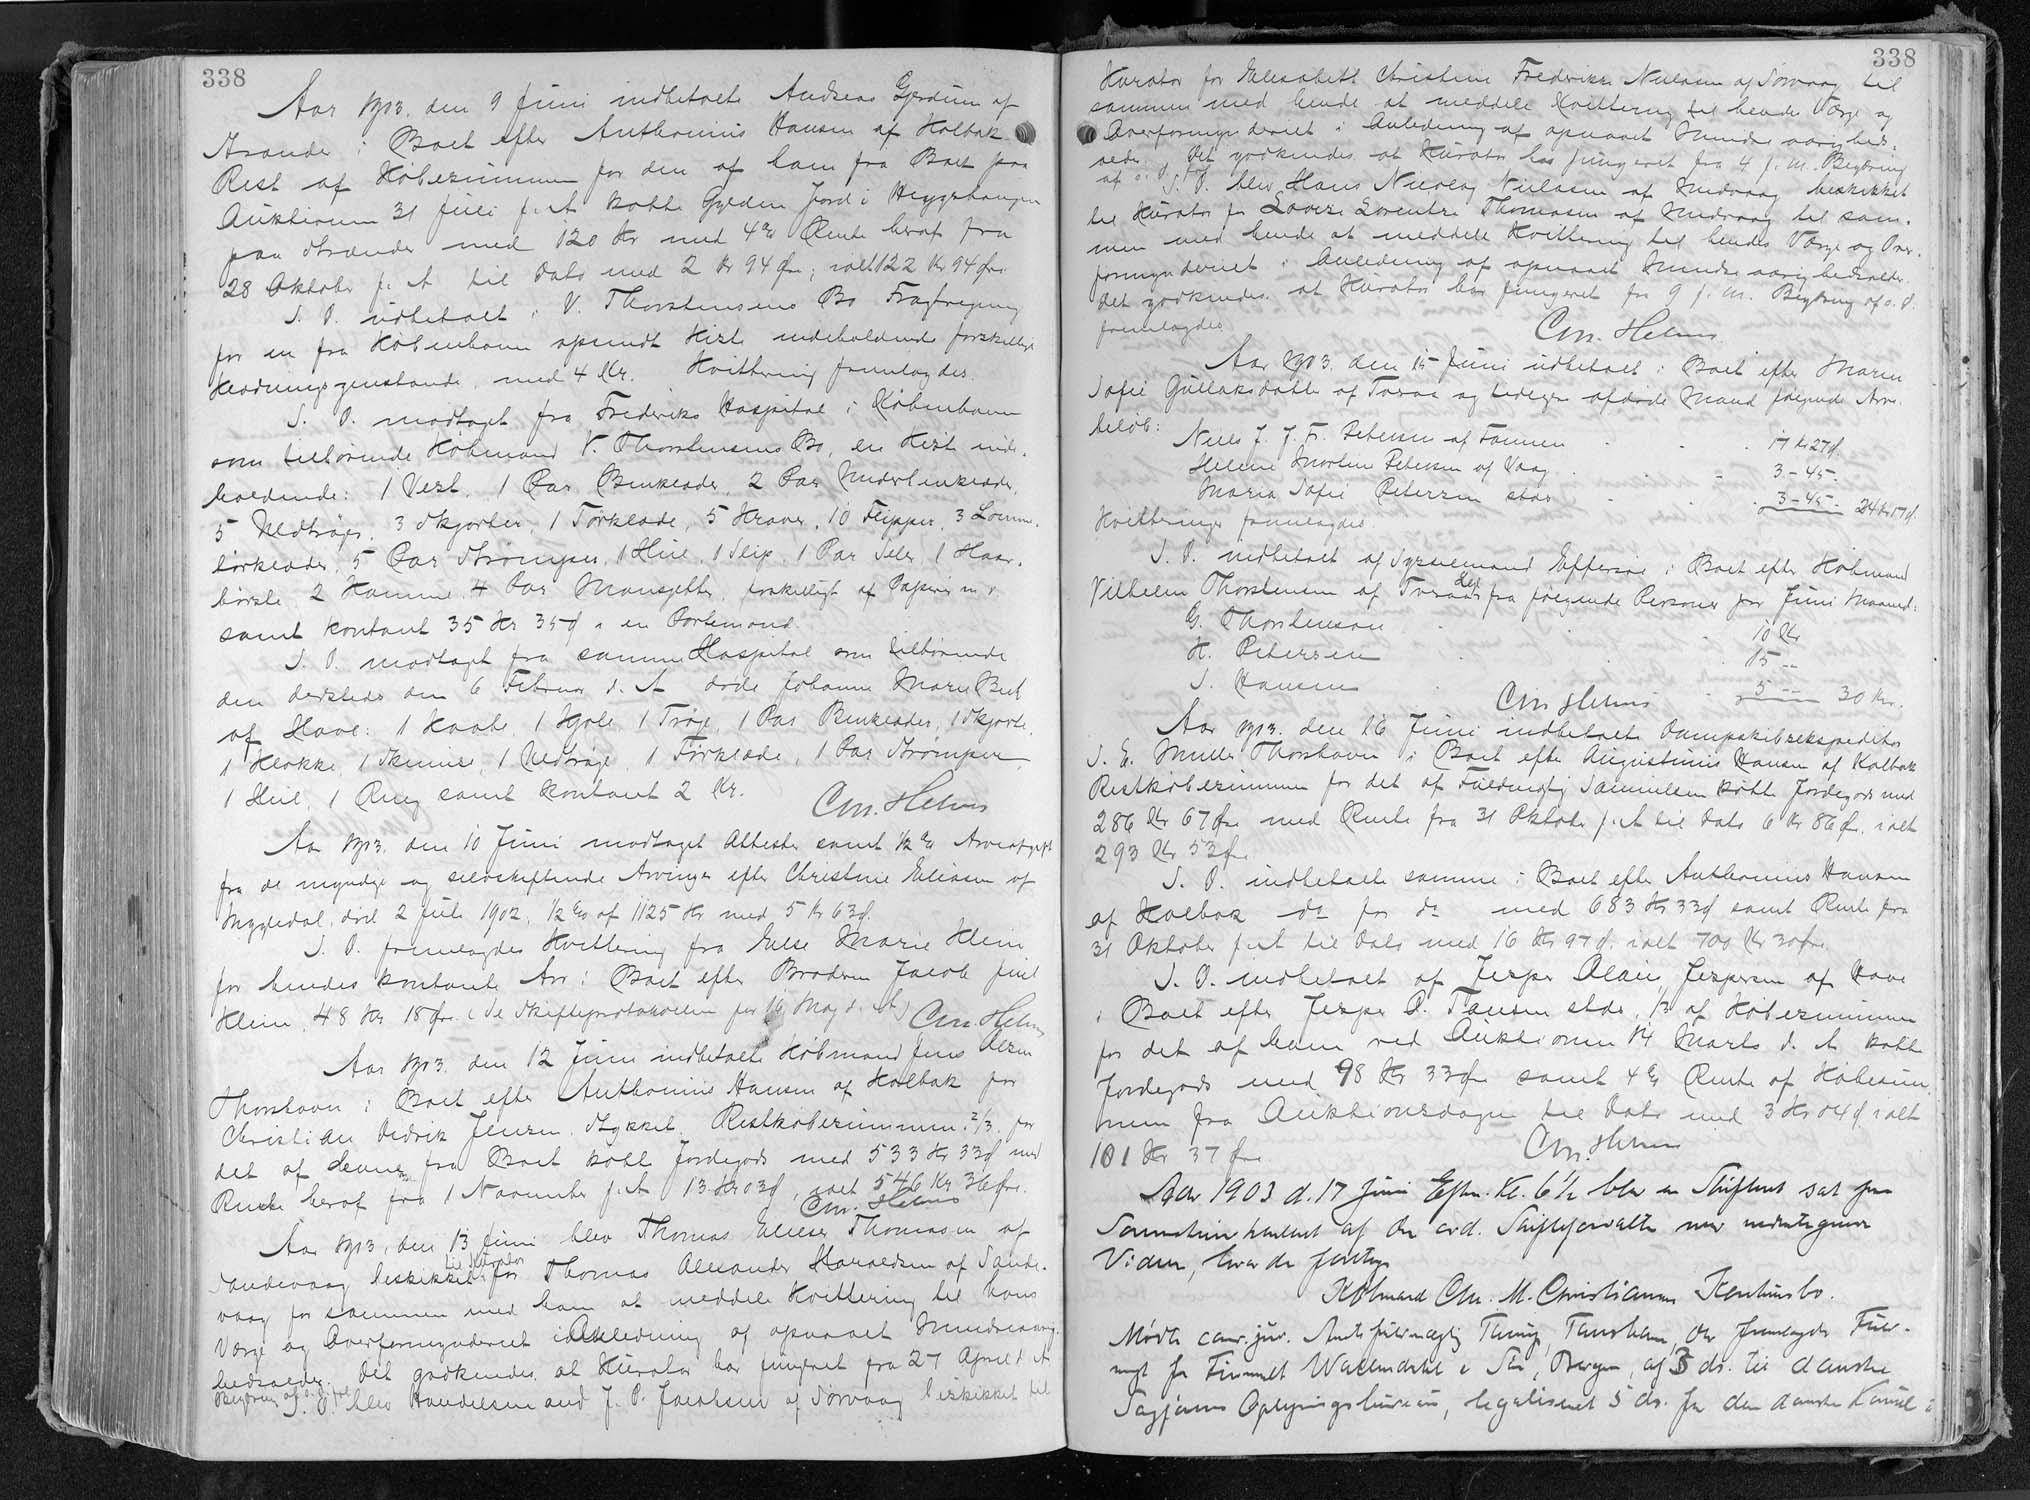 338
Aar 1903. den 9 Juni indbetalte Andreas Gjerdum af
Strande i Boet efter Anthonius Hansen af Kolbak
Rest af Købesummen for den af ham fra Boet paa
Auktionen 31 Juli f. A. købte Gylden Jord i
paa Strænder med 120 Kr med 4% Rente heraf fra
28 Oktober f. A. til Dato med 2 Kr 94 Øre; ialt 122 Kr 94 Øre.
S. D. udbetalt i V. Thorstensens Bo Fragtregning
for en fra København opsendt Kiste indeholdende forskellige
Klædningsgenstande, med 4 Kr. Kvittering fremlagdes.
S. D. modtaget fra Frederiks Hospital i København
som tilhørende Købmand V. Thorstensens Bo, en Kiste inde-
holdende: 1 Vest, 1 Par Benklæder, 2 Par Underbenklæder,
5 Uldtrøjer, 3 Skjorter, 1 Tørklæde, 5 Kraver, 10 Flipper, 3 Lomme-
tørklæder, 5 Par Strømper, 1 Hue, 1 Slips, 1 Par Seler, 1 Haar-
børste, 2 Kamme, 4 Par Manschetter, forskelligt af Papirer m. v.
samt kontant 35 Kr 35 Ø i en Portemonæ.
S. D. modtaget fra samme Hospital som tilhørende
den dersteds den 6 Februar d. A. døde Johanne Marie
af Have: 1 Kaabe, 1 Kjole, 1 Trøje, 1 Par Benklæder, 1 Skjorte,
1 Klokke, 1 Skinne, 1 Uldtrøje, 1 Forklæde, 1 Par Strømper,
1 Hue, 1 Ring samt kontant 2 Kr.
Chr. Helms
Aar 1903. den 10 Juni modtaget Attester samt ½% Arveafgift
fra de myndige og selvskiftende Arvinger efter Christine Eliasen af
Mygledal, død 2 Juli 1902, ½% af 1125 Kr med 5 Kr 63 Ø.
S. D. fremlagdes Kvittering fra Else Marie Klein
for hendes kontante Arv i Boet efter Broderen Jacob Juul
Klein, 48 Kr 18 Øre. (Se Skifteprotokollen for 16 Maj d. A.)
Chr. Helms
Aar 1903. den 12 Juni indbetalte Købmand Jens Olsen
Thorshavn i Boet efter Anthonius Hansen af Kolbak for
Christian Didrik Jensen, Restkøbesummen, 2/3, for
det af denne fra Boet købte Jordegods med 533 Kr 33 Ø med
Rente heraf fra 1 November f. A. 13 Kr 03 Ø, ialt 546 Kr 36 Øre.
Chr. Helms
Aar 1903, den 13 Juni blev Thomas Elieser Thomasen af
Sandevaag beskikket til Kurator for Thomas Alexander Haraldsen af Sande-
vaag for sammen med ham at meddele Kvittering til hans
Værge og Overformynderiet i Anledning af opnaaet Mindreaarig-
hedsalder. Det godkendes at Kurator har fungeret fra 27 April d. A.
Begæring af s. D.
S. D. blev Handelsmand J. P. Jacobsen af Sørvaag beskikket til
338
Kurator for Elisabeth Christine Frederikke Nielsen af Sørvaag til
sammen med hende at meddele Kvittering til hendes Værge og
Overformynderiet i Anledning af opnaaet Mindreaarigheds-
alder. Det godkendes at Kurator har fungeret fra 4 f. M. Begæring
af s. D.
S. D. blev Hans Nicolaj Nielsen af Midvaag beskikket
til Kurator for Lovise Lorentze Thomasen af Midvaag til sam-
men med hende at meddele Kvittering til hendes Værge og Over-
formynderiet i Anledning af opnaaet Mindreaarighedsalder.
Det godkendes at Kurator har fungeret fra 9 f. M. Begæring af s. D.
fremlagdes.
Chr. Helms
Aar 1903. den 15 Juni udbetalt i Boet efter Maren
Sofie Gullaksdatter af Tveraa og tidligere afdøde Mand følgende Arve-
beløb:
Niels J. J. Fr. Petersen af Famien 17 Kr 27 Ø.
Helene Morten Petersen af Vaag 3 - 45 -
Maria Sofie Petersen stds. 3 - 45 - 24 Kr 17 Ø.
Kvitteringer fremlagdes.
S. D. indbetalt af Sysselmand Effersøe i Boet efter Købmand
Vilhelm Thorstensen af Tveraa fra følgende Personer for Juni Maaned:
G. Thorstenson 10 Kr
K. Petersen 15 --
J. Hansen 5 -- 30 Kr.
Chr Helms
Aar 1903. den 16 Juni indbetalte Dampskibsekspeditør
J. E. Müller Thorshavn i Boet efter Augustinus Hansen af Kolbak
Restkøbesummen for det af Fuldmægtig Samuelsen købte Jordegods med
286 Kr 67 Øre med Rente fra 31 Oktober f. A. til Dato 6 Kr 86 Øre, ialt
293 Kr 53 Øre.
S. D. indbetalte samme i Boet efter Anthonius Hansen
af Kolbak do for do med 683 Kr 33 Ø samt Rente fra
31 Oktober f. A. til Dato med 16 Kr 97 Ø, ialt 700 Kr 30 Øre.
S. D. indbetalt af Jesper Jespersen af Have
i Boet efter Jesper P. Tausen stds. 1/3 af Købesummen
for det af ham ved Auktionen 14 Marts d. A. købte
Jordegods med 98 Kr 33 Øre samt 4% Rente af Købesum-
men fra Auktionsdagen til Dato med 3 Kr 04 Ø ialt
101 Kr 37 Øre
Chr. Helms
Aar 1903 d. 17 Juni Efm. Kl. 6½ blev en Skifteret sat paa
af den ord. Skifteforvalter med undertegnede
Vidner, hvor da foretoges
Købmand Chr. M. Christiansens Konkursbo.
Mødte cand. jur. Amtsfuldmægtig Thorshavn, der fremlagde Fuld-
magt fra Firmaet Wallendahl & Søn, Bergen, af 3 ds. til danske
Sagførers Oplysningsbureau, legaliseret 5 ds. for den danske Konsul i